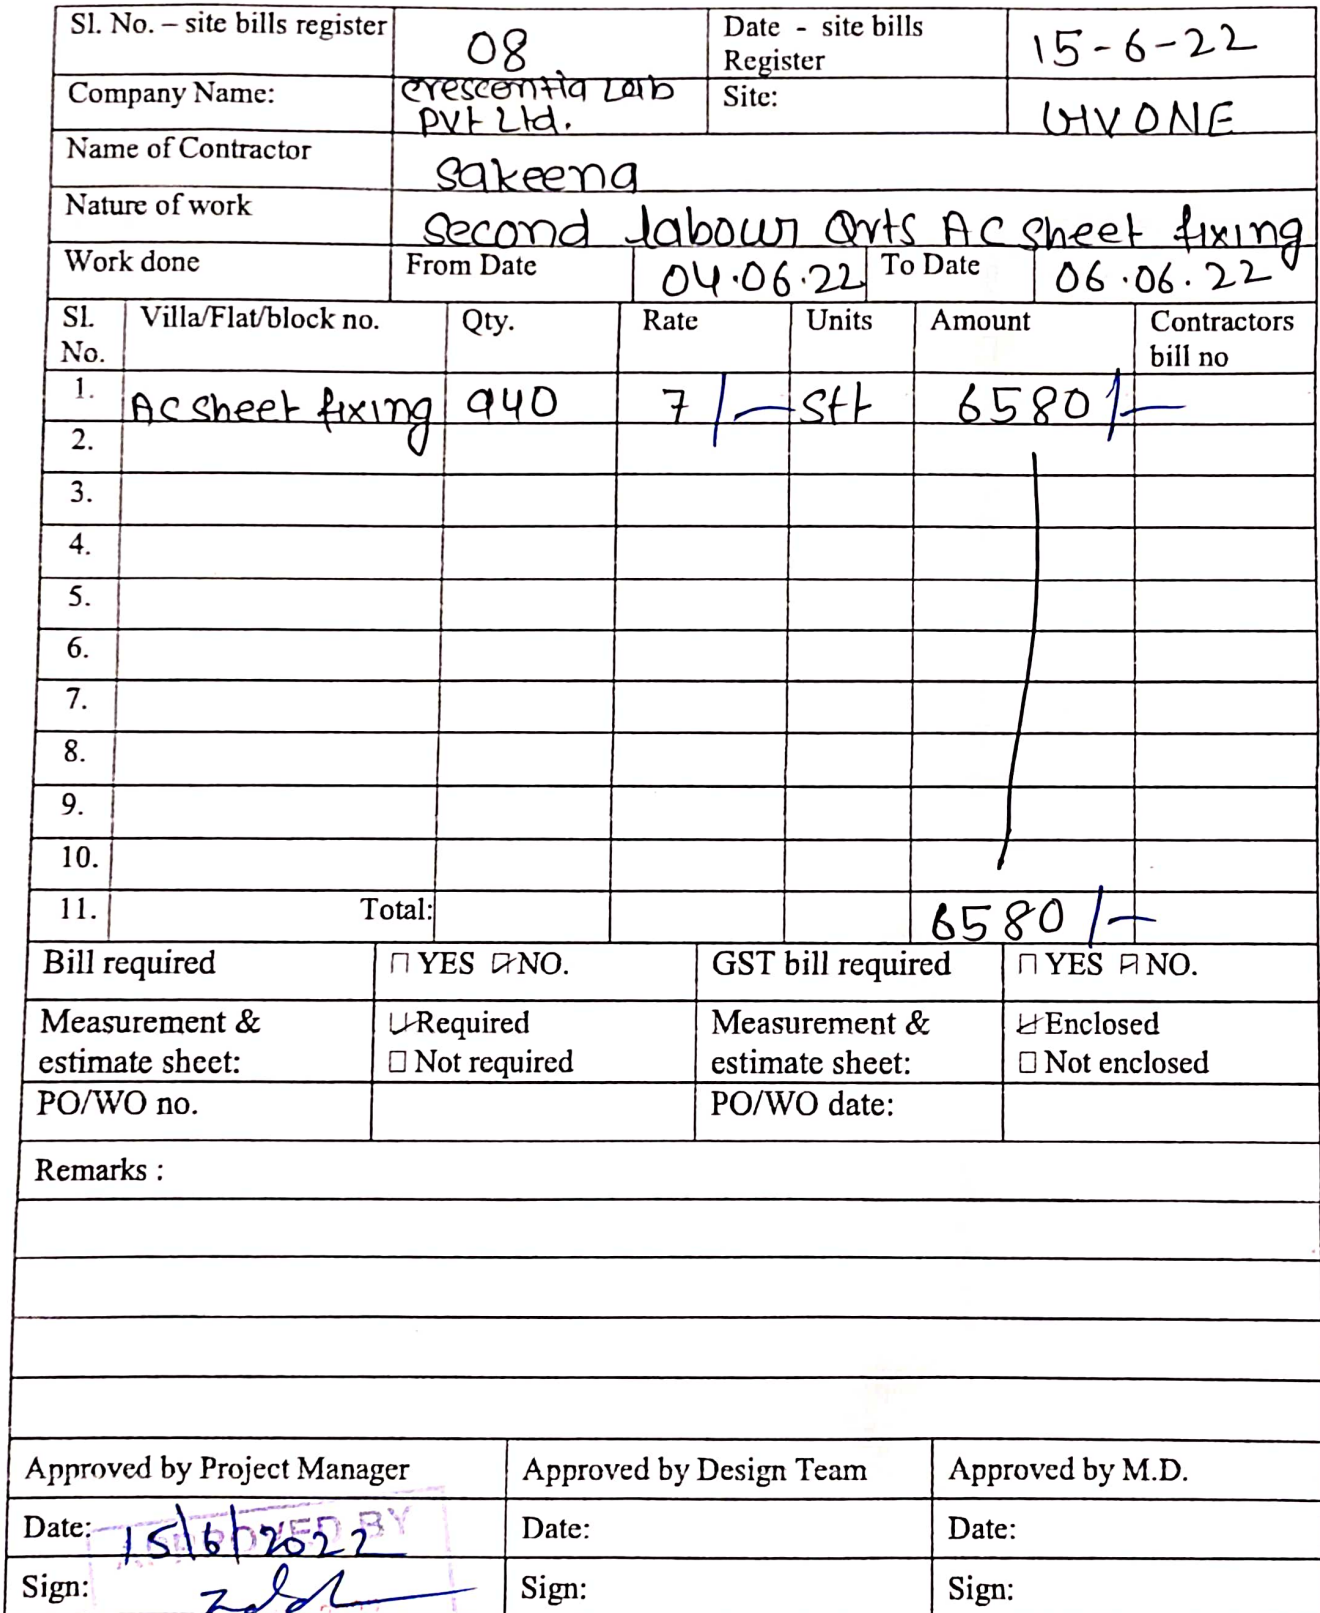 Sl. No. – site bills register 08 Date - site bills Register 15-6-22
Company Name: crescentia Lab Pvt Ltd. Site: GHV ONE
Name of Contractor Sakeena
Nature of work second labour Qrts AC sheet fixing
Work done From Date 04.06.22 To Date 06.06.22
Sl. No. Villa/Flat/block no. Qty. Rate Units Amount Contractors bill no
1. AC sheet fixing 940 7/- Sft 6580/-
2.
3.
4.
5.
6.
7.
8.
9.
10.
11. Total: 6580/-
Bill required YES NO. GST bill required YES NO.
Measurement & estimate sheet: Required Not required Measurement & estimate sheet: Enclosed Not enclosed
PO/WO no. PO/WO date:
Remarks :
Approved by Project Manager Approved by Design Team Approved by M.D.
Date: 15/6/2022 Date: Date:
Sign: Sign: Sign: